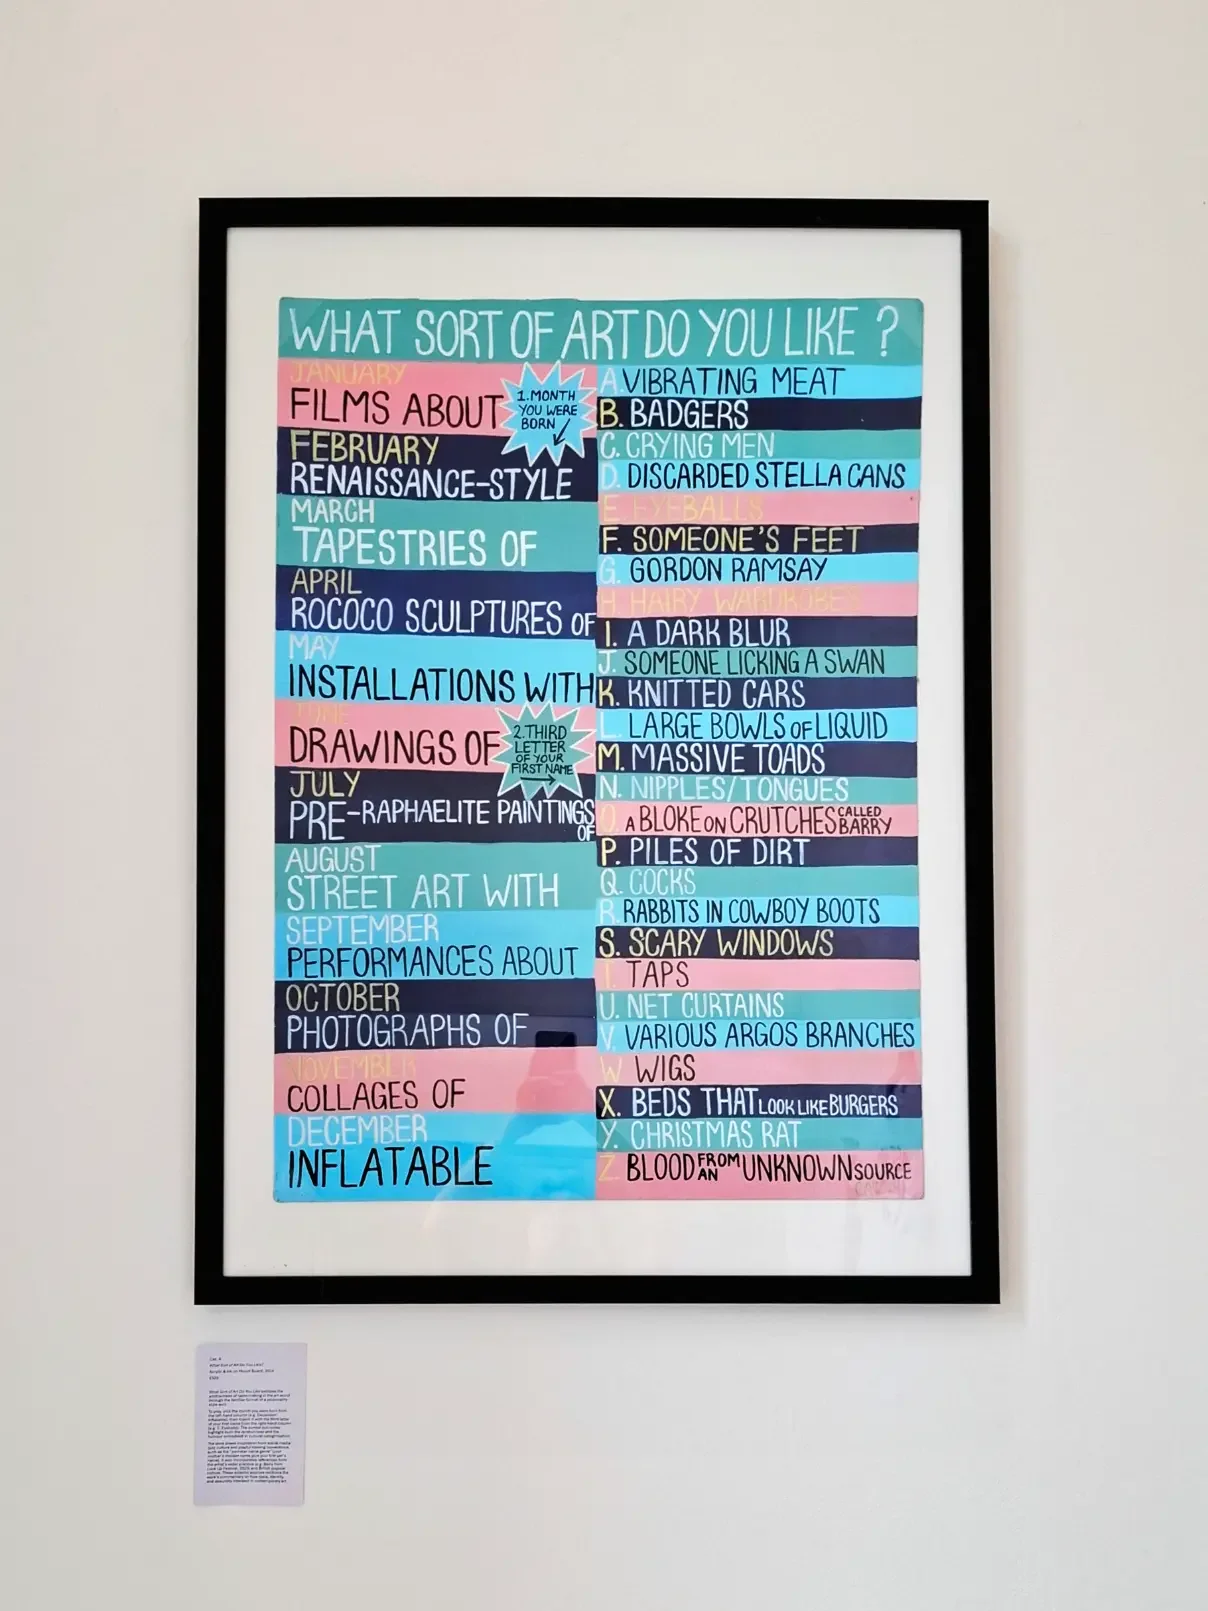 WHAT SORT OF ART DO YOU LIKE ?
JANUARY
FILMS ABOUT
1. MONTH
YOU WERE
BORN
FEBRUARY
RENAISSANCE-STYLE
MARCH
TAPESTRIES OF
APRIL
ROCOCO SCULPTURES OF
MAY
INSTALLATIONS WITH
JUNE
DRAWINGS OF
2. THIRD
LETTER
OF YOUR
FIRST NAME
JULY
PRE-RAPHAELITE PAINTINGS
OF
AUGUST
STREET ART WITH
SEPTEMBER
PERFORMANCES ABOUT
OCTOBER
PHOTOGRAPHS OF
NOVEMBER
COLLAGES OF
DECEMBER
INFLATABLE
A. VIBRATING MEAT
B. BADGERS
C. CRYING MEN
D. DISCARDED STELLA CANS
E. EYEBALLS
F. SOMEONE'S FEET
G. GORDON RAMSAY
H. HAIRY WARDROBES
I. A DARK BLUR
J. SOMEONE LICKING A SWAN
K. KNITTED CARS
L. LARGE BOWLS OF LIQUID
M. MASSIVE TOADS
N. NIPPLES/TONGUES
O. A BLOKE ON CRUTCHES CALLED BARRY
P. PILES OF DIRT
Q. COCKS
R. RABBITS IN COWBOY BOOTS
S. SCARY WINDOWS
T. TAPS
U. NET CURTAINS
V. VARIOUS ARGOS BRANCHES
W WIGS
X. BEDS THAT LOOK LIKE BURGERS
Y. CHRISTMAS RAT
Z BLOOD FROM AN UNKNOWN SOURCE
What Sort of Art Do You Like?